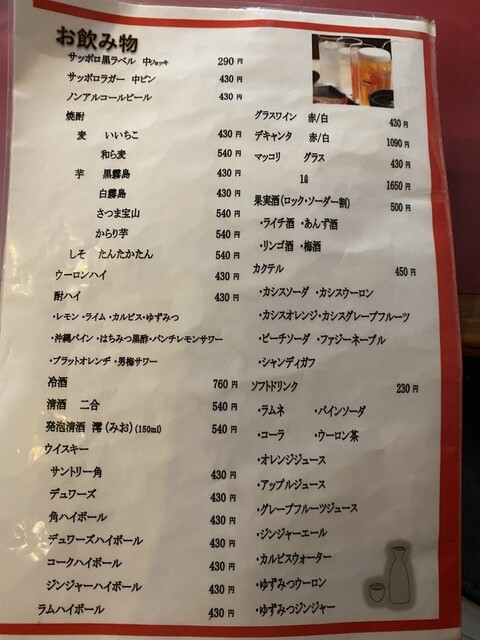 お飲み物
サッポロ黒ラベル 中ジョッキ 290 円
サッポロラガー 中ビン 430 円
ノンアルコールビール 430 円
焼酎
麦 いいちこ 430 円
和ら麦 540 円
芋 黒霧島 430 円
白霧島 430 円
さつま宝山 540 円
からり芋 540 円
しそ たんたかたん 540 円
ウーロンハイ 430 円
酎ハイ 430 円
・レモン ・ライム ・カルピス・ゆずみつ
・沖縄パイン ・はちみつ黒酢・パンチレモンサワー
・ブラットオレンヂ ・男梅サワー
冷酒 760 円
清酒 二合 540 円
発泡清酒 澪(みお)(150ml) 540 円
ウイスキー
サントリー角 430 円
デュワーズ 430 円
角ハイボール 430 円
デュワーズハイボール 430 円
コークハイボール 430 円
ジンジャーハイボール 430 円
ラムハイボール 430 円
グラスワイン 赤/白 430 円
デキャンタ 赤/白 1090 円
マッコリ グラス 430 円
1ℓ 1650 円
果実酒(ロック・ソーダー割) 500 円
・ライチ酒 ・あんず酒
・リンゴ酒 ・梅酒
カクテル 450 円
・カシスソーダ ・カシスウーロン
・カシスオレンジ・カシスグレープフルーツ
・ピーチソーダ ・ファジーネーブル
・シャンディガフ
ソフトドリンク 230 円
・ラムネ ・パインソーダ
・コーラ ・ウーロン茶
・オレンジジュース
・アップルジュース
・グレープフルーツジュース
・ジンジャーエール
・カルピスウォーター
・ゆずみつウーロン
・ゆずみつジンジャー